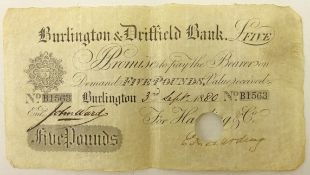 Burlington & Driffield Bank. £FIVE
I Promise to pay the Bearer on
Demand FIVE POUNDS, Value received
No B1563 Burlington 3rd Sept 1880 No B1563
Entd John Ward For Harding & Co
Five Pounds